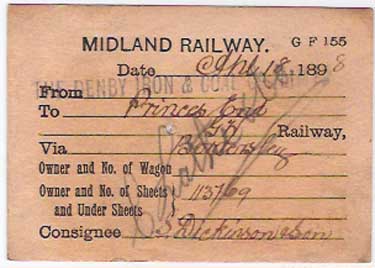 MIDLAND RAILWAY. G F 155
Date April 18 1898
From THE DENBY IRON & COAL
To Princes End
Railway,
Via
Owner and No. of Wagon
Owner and No. of Sheets and Under Sheets } 113769
Consignee S. Dickinson & Son